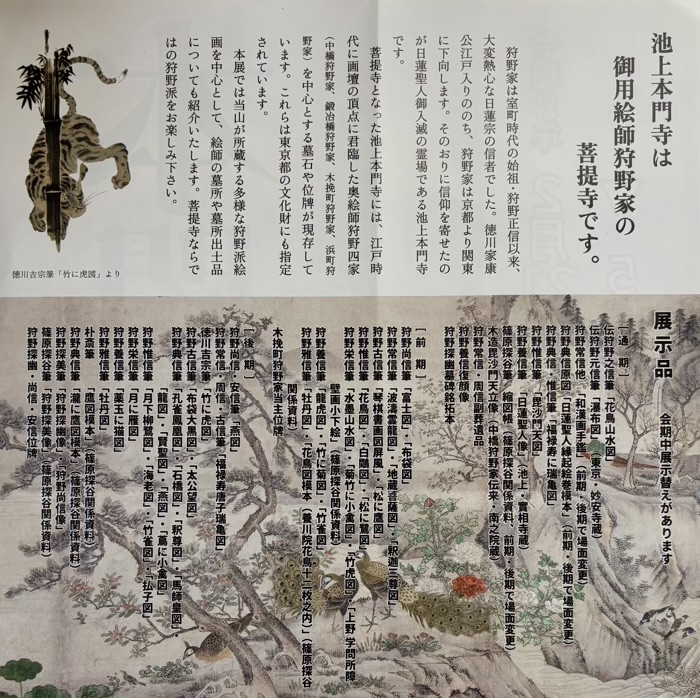 池上本門寺は
御用絵師狩野家の
菩提寺です。
狩野家は室町時代の始祖・狩野正信以来、
大変熱心な日蓮宗の信者でした。徳川家康
公江戸入りののち、狩野家は京都より関東
に下向します。そのおりに信仰を寄せたの
が日蓮聖人御入滅の霊場である池上本門寺
です。
菩提寺となった池上本門寺には、江戸時
代に画壇の頂点に君臨した奥絵師狩野四家
（中橋狩野家、鍛冶橋狩野家、木挽町狩野家、浜町狩
野家）を中心とする墓石や位牌が現存して
います。これらは東京都の文化財にも指定
されています。
本展では当山が所蔵する多様な狩野派絵
画を中心として、絵師の墓所や墓所出土品
についても紹介いたします。菩提寺ならで
はの狩野派をお楽しみ下さい。
徳川吉宗筆「竹に虎図」より
展示品 会期中展示替えがあります
［通期］
伝狩野之信筆「花鳥山水図」
伝狩野元信筆「瀑布図」（東京・妙安寺蔵）
狩野常信他筆「和漢画手鑑」（前期・後期で場面変更）
狩野典信原図「日蓮聖人縁起絵巻模本」（前期・後期で場面変更）
狩野典信・惟信筆「福禄寿に瑞亀図」
狩野惟信筆「毘沙門天図」
狩野養信筆「日蓮聖人像」（池上・實相寺蔵）
篠原探谷筆「縮図帳」（篠原探谷関係資料、前期・後期で場面変更）
木造毘沙門天立像（中橋狩野家伝来・南之院蔵）
狩野常信・周信副葬遺品
狩野養信復顔像
狩野探幽墓碑銘拓本
［前期］
狩野尚信筆「富士図」・「布袋図」
狩野常信筆「波濤雲龍図」・「地蔵菩薩図」・「釈迦三尊図」
狩野古信筆「琴棋書画図屏風」・「松に鷹図」
狩野惟信筆「花鳥図」・「白鷺図」・「松に鷺図」
狩野栄信筆「水墨山水図」・「菊竹に小禽図」・「竹虎図」・「上野 学問所障
壁画小下絵」（篠原探谷関係資料）
狩野養信筆「龍虎図」・「竹に菊図」・「竹雀図」
狩野雅信筆「牡丹図」・「花鳥図巻模本（養川院花鳥十二枚之内）」（篠原探谷
関係資料）
木挽町狩野家当主位牌
［後期］
狩野尚信・安信筆「燕図」
狩野常信・周信・古信筆「福禄寿唐子瑞亀図」
徳川吉宗筆「竹に虎図」
狩野古信筆「布袋大黒図」・「太公望図」
狩野典信筆「孔雀鳳凰図」・「石橋図」・「釈尊図」・「馬師皇図」・
「龍図」・「賢聖図」・「燕図」・「蔦に小禽図」
狩野惟信筆「月下柳鷺図」・「海老図」・「竹雀図」・「払子図」
狩野栄信筆「月に雁図」
狩野養信筆「薬玉に猫図」
狩野雅信筆「牡丹図」
朴斎筆「鷹図模本」（篠原探谷関係資料）
狩野典信筆「瀧に鷹図模本」（篠原探谷関係資料）
狩野探美筆「狩野探幽像」・「狩野尚信像」
篠原探谷筆「狩野探美像」（篠原探谷関係資料）
狩野探幽・尚信・安信位牌